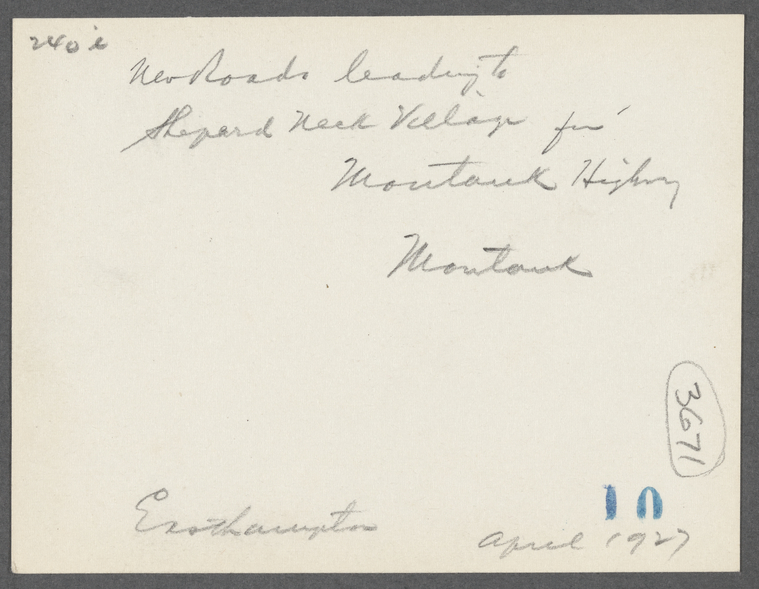 240 e
New Roads leading to
Shepard Neck Village fm
Montauk Highwy
Montauk
3671
10
Easthampton
April 1927